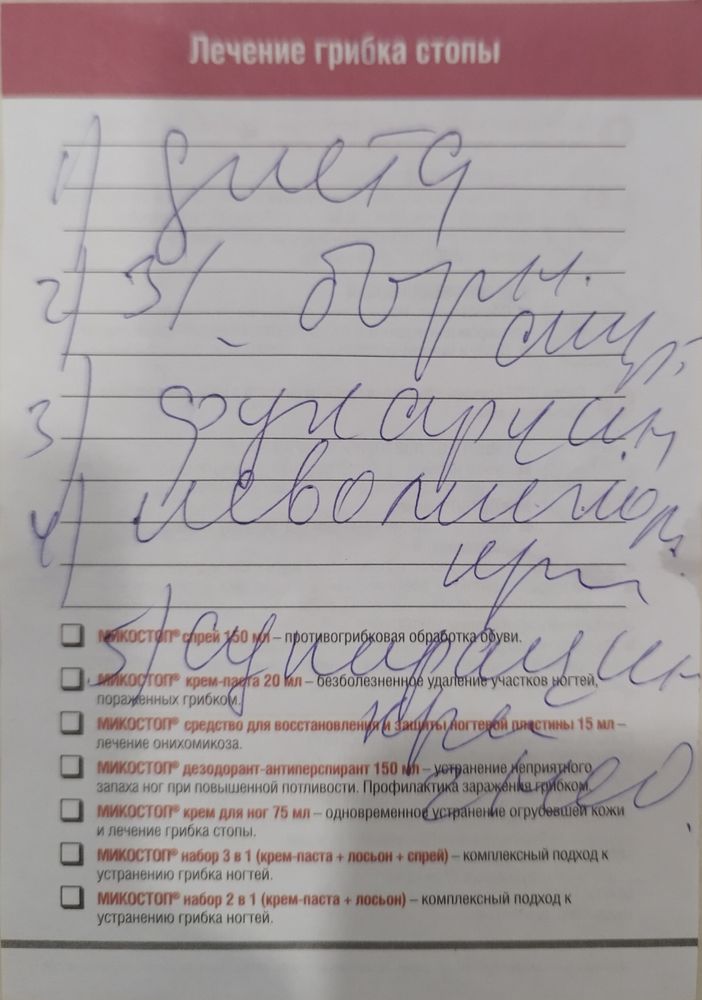 Лечение грибка стопы
1) диета
2) 3% борн.
спирт
3) фукарцин
4) левомиколь
при
5) супирацин
при
МИКОСТОП® спрей 150 мл – противогрибковая обработка обуви.
МИКОСТОП® крем-паста 20 мл – безболезненное удаление участков ногтей,
пораженных грибком.
МИКОСТОП® средство для восстановления и защиты ногтевой пластины 15 мл –
лечение онихомикоза.
МИКОСТОП® дезодорант-антиперспирант 150 мл – устранение неприятного
запаха ног при повышенной потливости. Профилактика заражения грибком.
МИКОСТОП® крем для ног 75 мл – одновременное устранение огрубевшей кожи
и лечение грибка стопы.
МИКОСТОП® набор 3 в 1 (крем-паста + лосьон + спрей) – комплексный подход к
устранению грибка ногтей.
МИКОСТОП® набор 2 в 1 (крем-паста + лосьон) – комплексный подход к
устранению грибка ногтей.